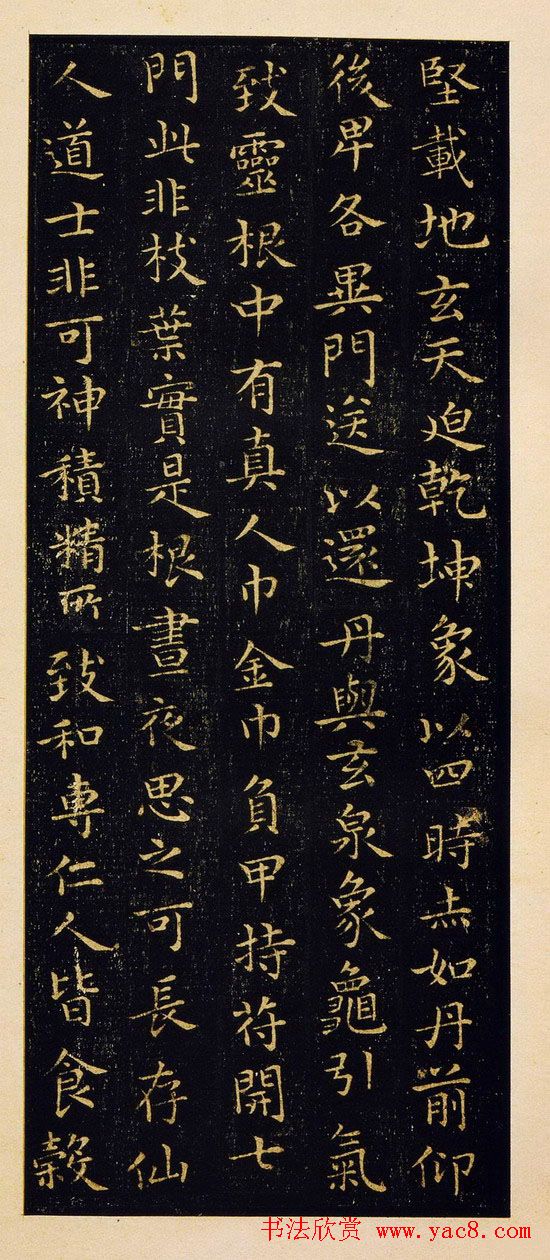 堅載地玄天迫乾坤象以四時赤如丹前仰
後卑各異門送以還丹與玄泉象龜引氣
致靈根中有真人巾金巾負甲持苻開七
門此非枝葉實是根晝夜思之可長存仙
人道士非可神積精所致和專仁人皆食穀
书法欣赏 www.yac8.com